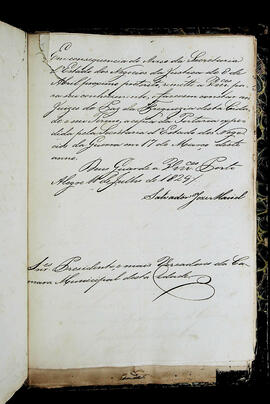 Em consequencia do Aviso da Secretaria
d'Estado dos Negocios da Justiça de 6 de
Abril proximo preterito, remetto a V.as S.as
para seu conhecimento, e fazerem constar aos
Juizes de Paz da Freguezia desta Cida-
de e seu Termo, a copia da Portaria expe-
dida pela Secretaria d'Estado dos Nego-
cios da Guerra em 17 de Março deste
anno.
Deos Guarde a V.as S.as Porto
Alegre de Julho de 1829
Salvador Jose Maciel
Snr.es Presidente, e mais Vereadores da Ca-
mara Municipal desta Cidade